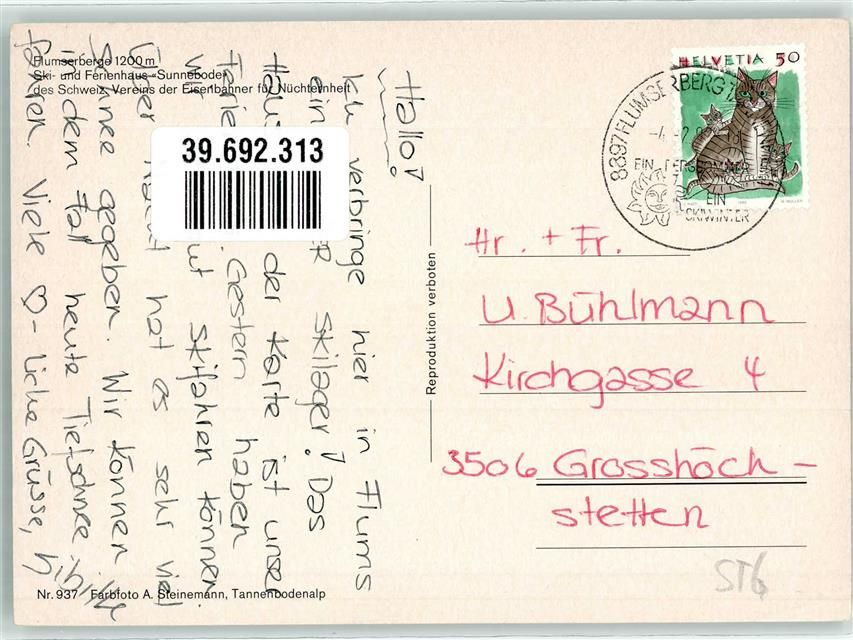 Flumserberge 1200 m
Ski- und Ferienhaus «Sunnebode»
des Schweiz. Vereins der Eisenbahner für Nüchternheit
39.692.313
Hallo!
Ich verbringe hier in Flums
ein Skilager! Das
Haus der Karte ist unser
Ferie
Wir Gestern haben
gut Skifahren können.
Über Nacht hat es sehr viel
Schnee gegeben. Wir können
in dem Fall heute Tiefschnee
fahren. Viele ♡-liche Grüsse,
Reproduktion verboten
HELVETIA 50
8897 FLUMSERBERG
EIN
EIN
SKIWINTER
Hr. + Fr.
U. Bühlmann
Kirchgasse 4
3506 Grosshöch-
stetten
Nr. 937 Farbfoto A. Steinemann, Tannenbodenalp
ST6